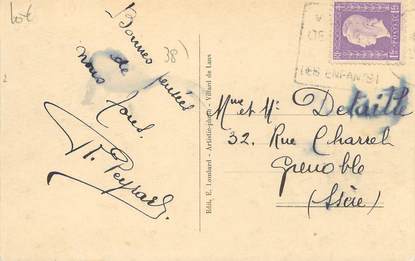 lot
38
Bonnes pensées
de
nous tous.
Edit. E. Lombard - Artistic-photo - Villard de Lans
LES ENFANTS!
Mme et Mr Delaille
32. Rue Charrel
Grenoble
(Isère)